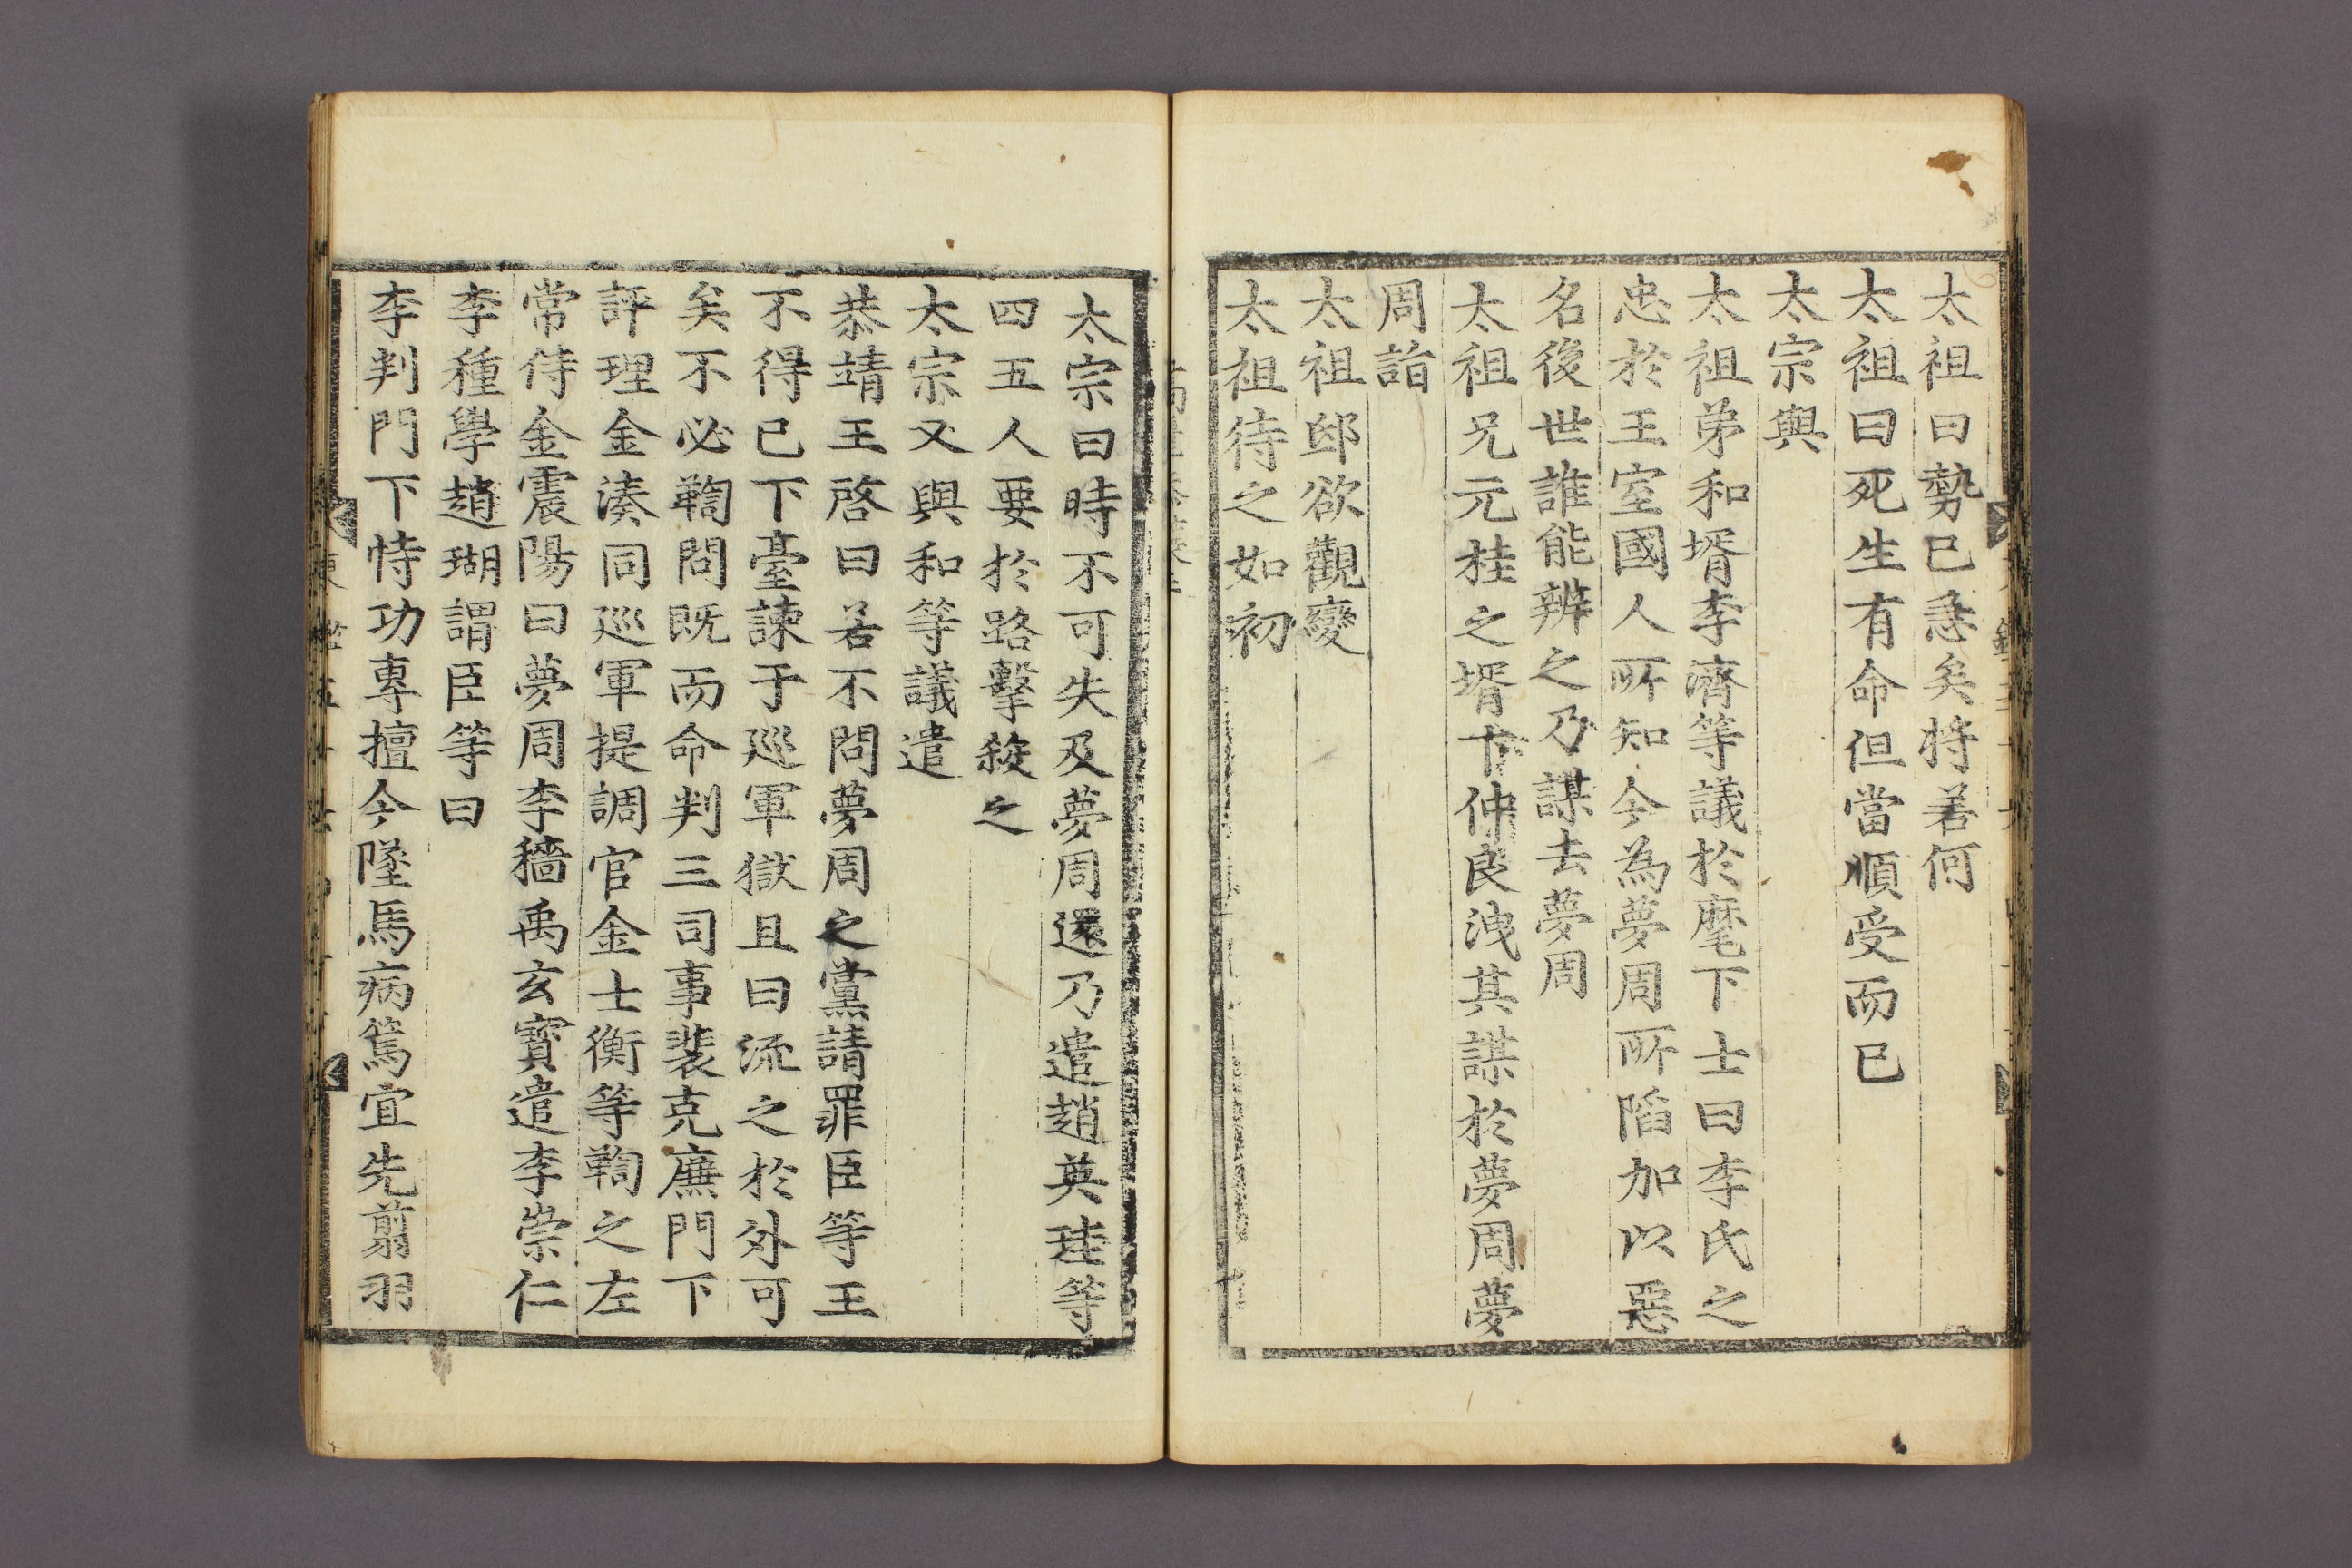 太祖曰勢已急矣將若何
太祖曰死生有命但當順受而已
太宗與
太祖弟和壻李濟等議於麾下士曰李氏之
忠於王室國人所知今為夢周所陷加以惡
名後世誰能辨之乃謀去夢周
太祖兄元桂之壻卞仲良洩其謀於夢周夢
周詣
太祖邸欲觀變
太祖待之如初
太宗曰時不可失及夢周還乃遣趙英珪等
四五人要於路擊殺之
太宗又與和等議遣
恭靖王啓曰若不問夢周之黨請罪臣等王
不得已下臺諫于巡軍獄且曰流之於外可
矣不必鞫問既而命判三司事裴克廉門下
評理金湊同巡軍提調官金士衡等鞫之左
常侍金震陽曰夢周李穡禹玄寶遣李崇仁
李種學趙瑚謂臣等曰
李判門下恃功專擅今墜馬病篤宜先翦羽